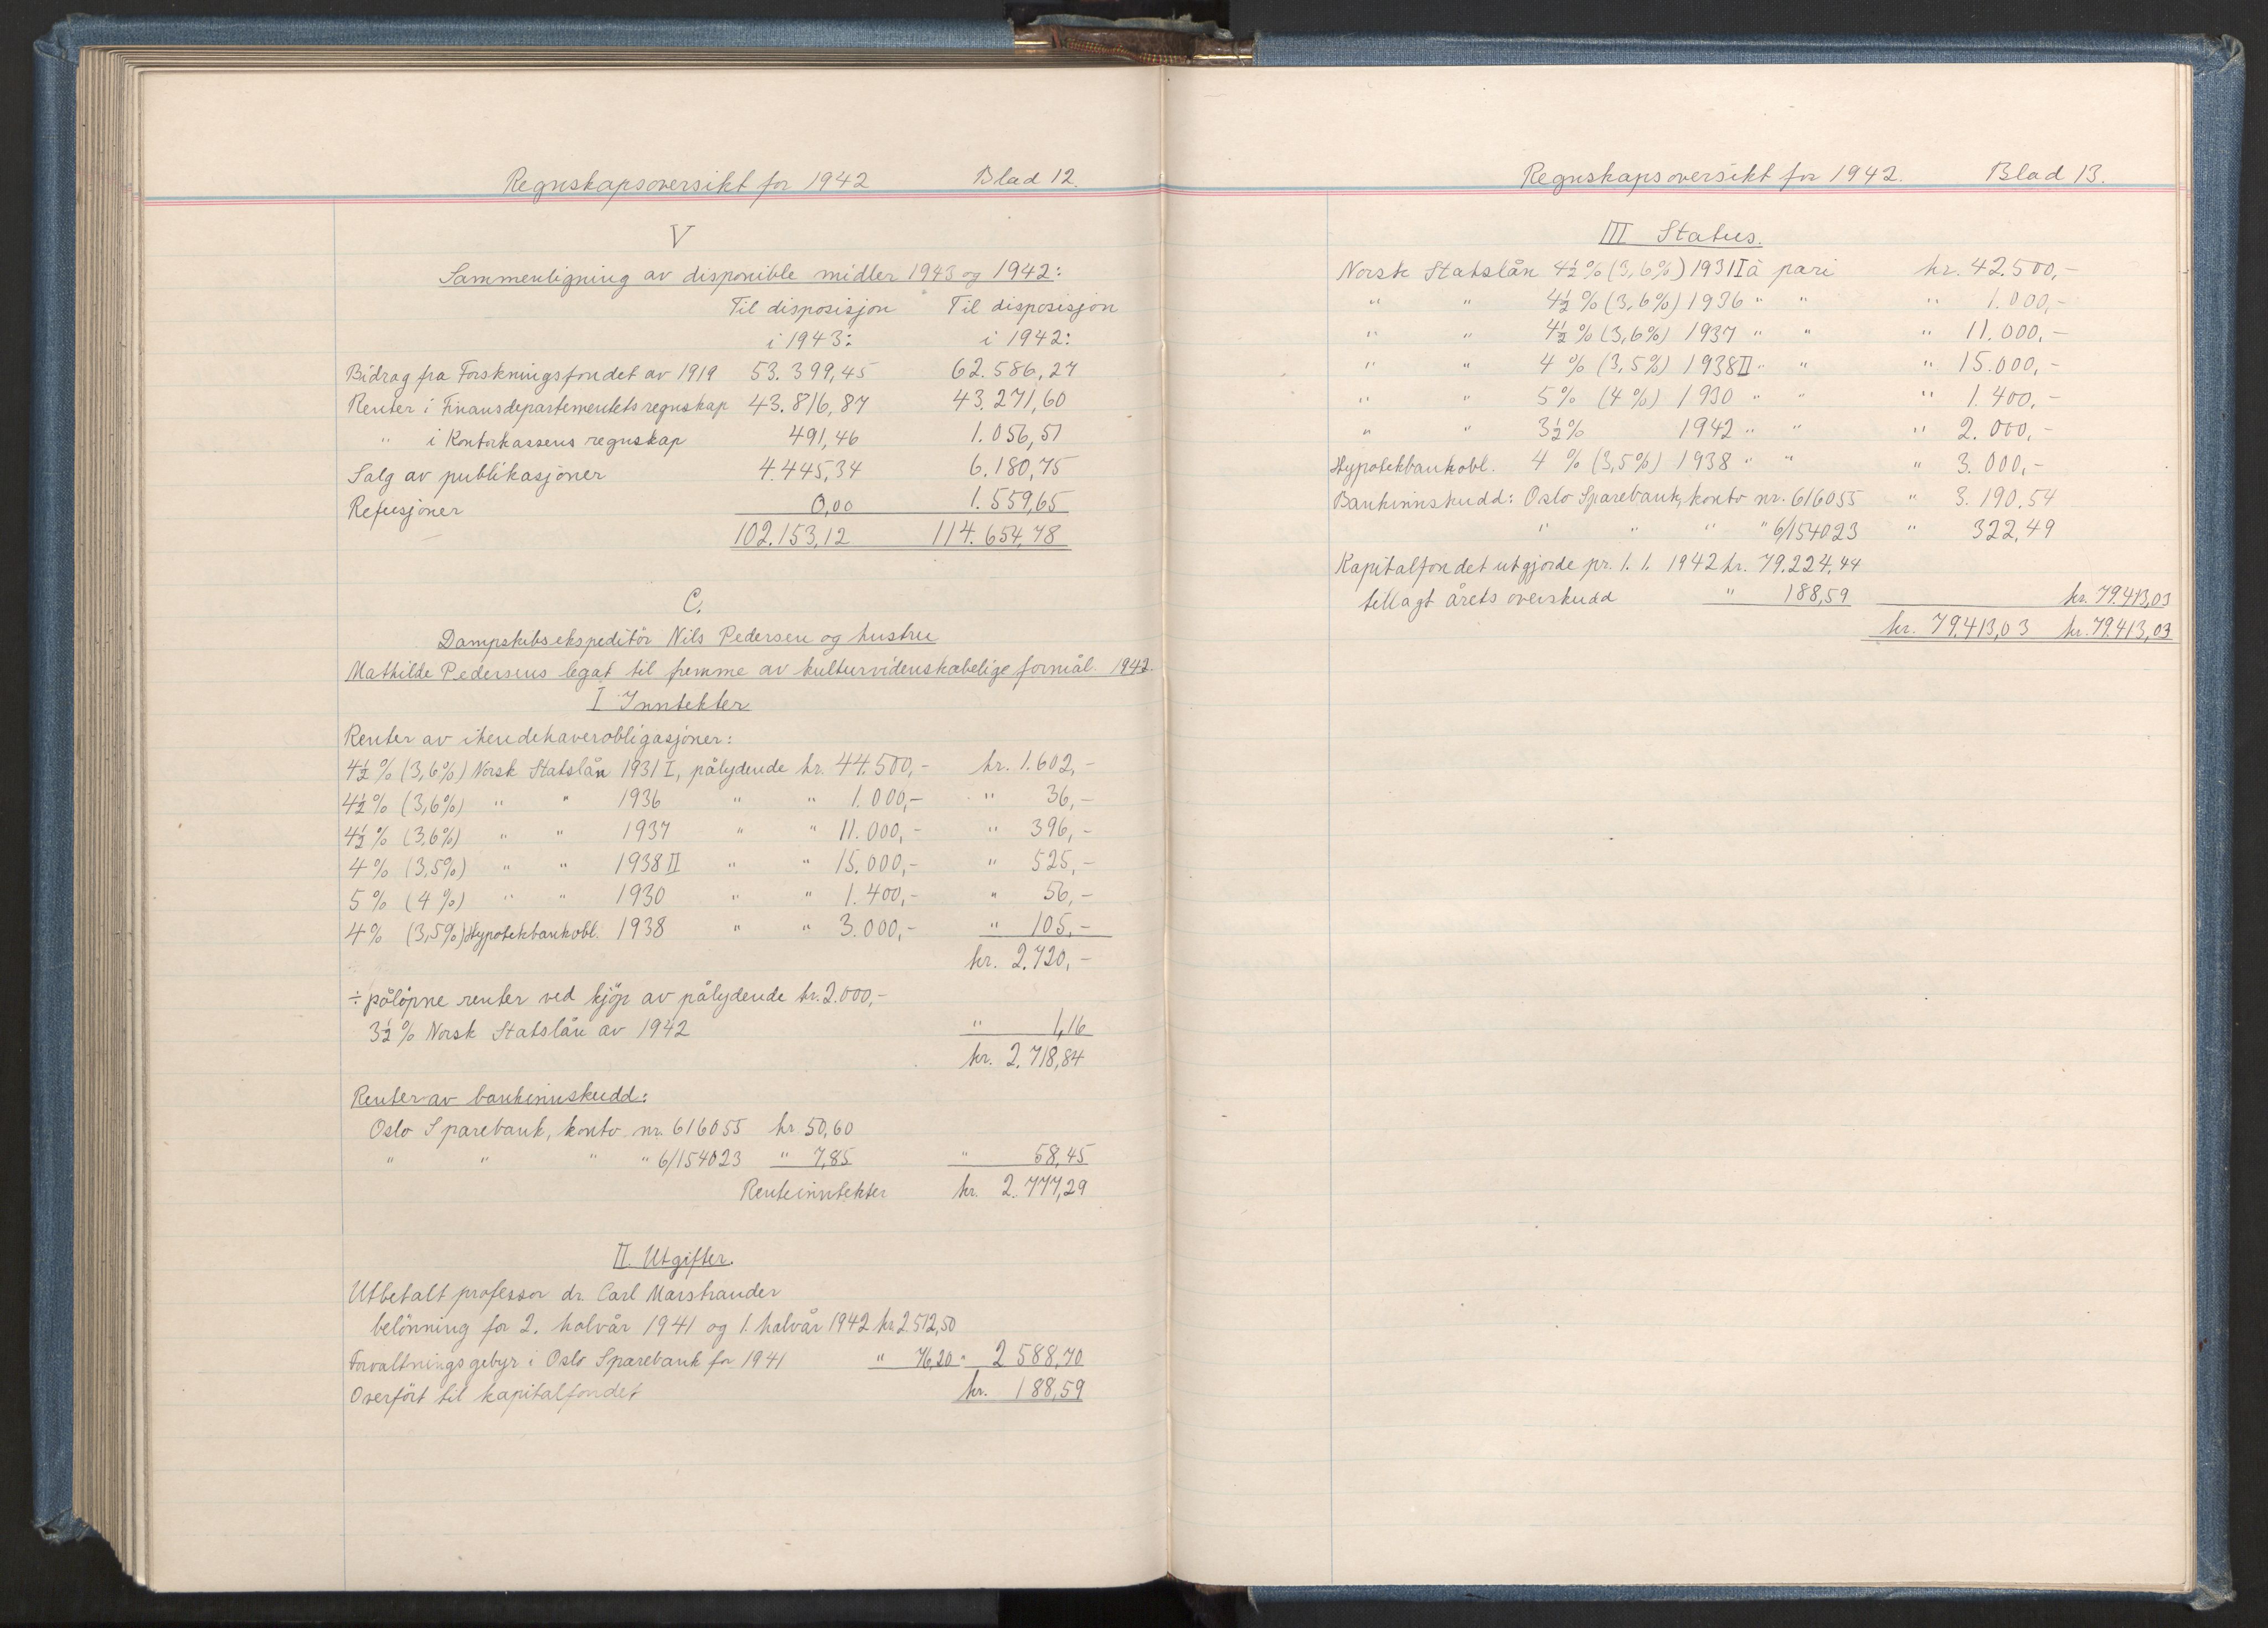 Regnskapsoversikt for 1942 Blad 12.
V
Sammenligning av disponible midler 1943 og 1942:
Til disposisjon Til disposisjon
i 1943: i 1942:
Bidrag fra Forskningsfondet av 1919 53.399,45 62.586,27
Renter i Finansdepartementets regnskap 43.816,87 43.271,60
" i Kontorkassens regnskap 491,46 1.056,51
Salg av publikasjoner 4.445,34 6.180,75
Refusjoner 0,00 1.559,65
102.153,12 114.654,78
C.
Dampskibsekspeditör Nils Pedersen og hustru
Mathilde Pedersens legat til fremme av kulturvidenskabelige formål. 1942.
I Inntekter
Renter av ihendehaverobligasjoner:
4½% (3,6%) Norsk Statslån 1931 I, pålydende kr. 44.500,- kr. 1.602,-
4½% (3,6%) " " 1936 " " 1.000,- " 36,-
4½% (3,6%) " " 1937 " " 11.000,- " 396,-
4% (3,5%) " " 1938 II " " 15.000,- " 525,-
5% (4%) " " 1930 " " 1.400,- " 56,-
4% (3,5%) Hypotekbankobl. 1938 " " 3.000,- " 105,-
kr. 2.720,-
÷ pålöpne renter ved kjöp av pålydende kr. 2.000,-
3½% Norsk Statslån av 1942 " 1,16
kr. 2.718,84
Renter av bankinnskudd:
Oslo Sparebank, konto nr. 616055 kr 50,60
" " " " 6/154023 " 7,85 " 58,45
Renteinntekter kr. 2.777,29
II. Utgifter.
Utbetalt professor dr. Carl Marstrander
belönning for 2. halvår 1941 og 1. halvår 1942 kr. 2.512,50
Forvaltningsgebyr i Oslo Sparebank for 1941 " 76,20 " 2 588,70
Overfört til kapitalfondet kr. 188,59
Regnskapsoversikt for 1942. Blad 13.
III Status.
Norsk Statslån 4½% (3,6%) 1931 I à pari kr. 42.500,-
" " 4½% (3,6%) 1936 " " " 1.000,-
" " 4½% (3,6%) 1937 " " " 11.000,-
" " 4% (3,5%) 1938 II " " " 15.000,-
" " 5% (4%) 1930 " " " 1.400,-
" " 3½% 1942 " " " 2.000,-
Hypotekbankobl. 4% (3,5%) 1938 " " " 3.000,-
Bankinnskudd: Oslo Sparebank, konto nr. 616055 " 3.190.54
" " " " 6/154023 " 322,49
Kapitalfondet utgjorde pr. 1.1. 1942 kr. 79.224,44
tillagt årets overskudd " 188,59 kr. 79.413,03
kr. 79.413,03 kr. 79.413,03